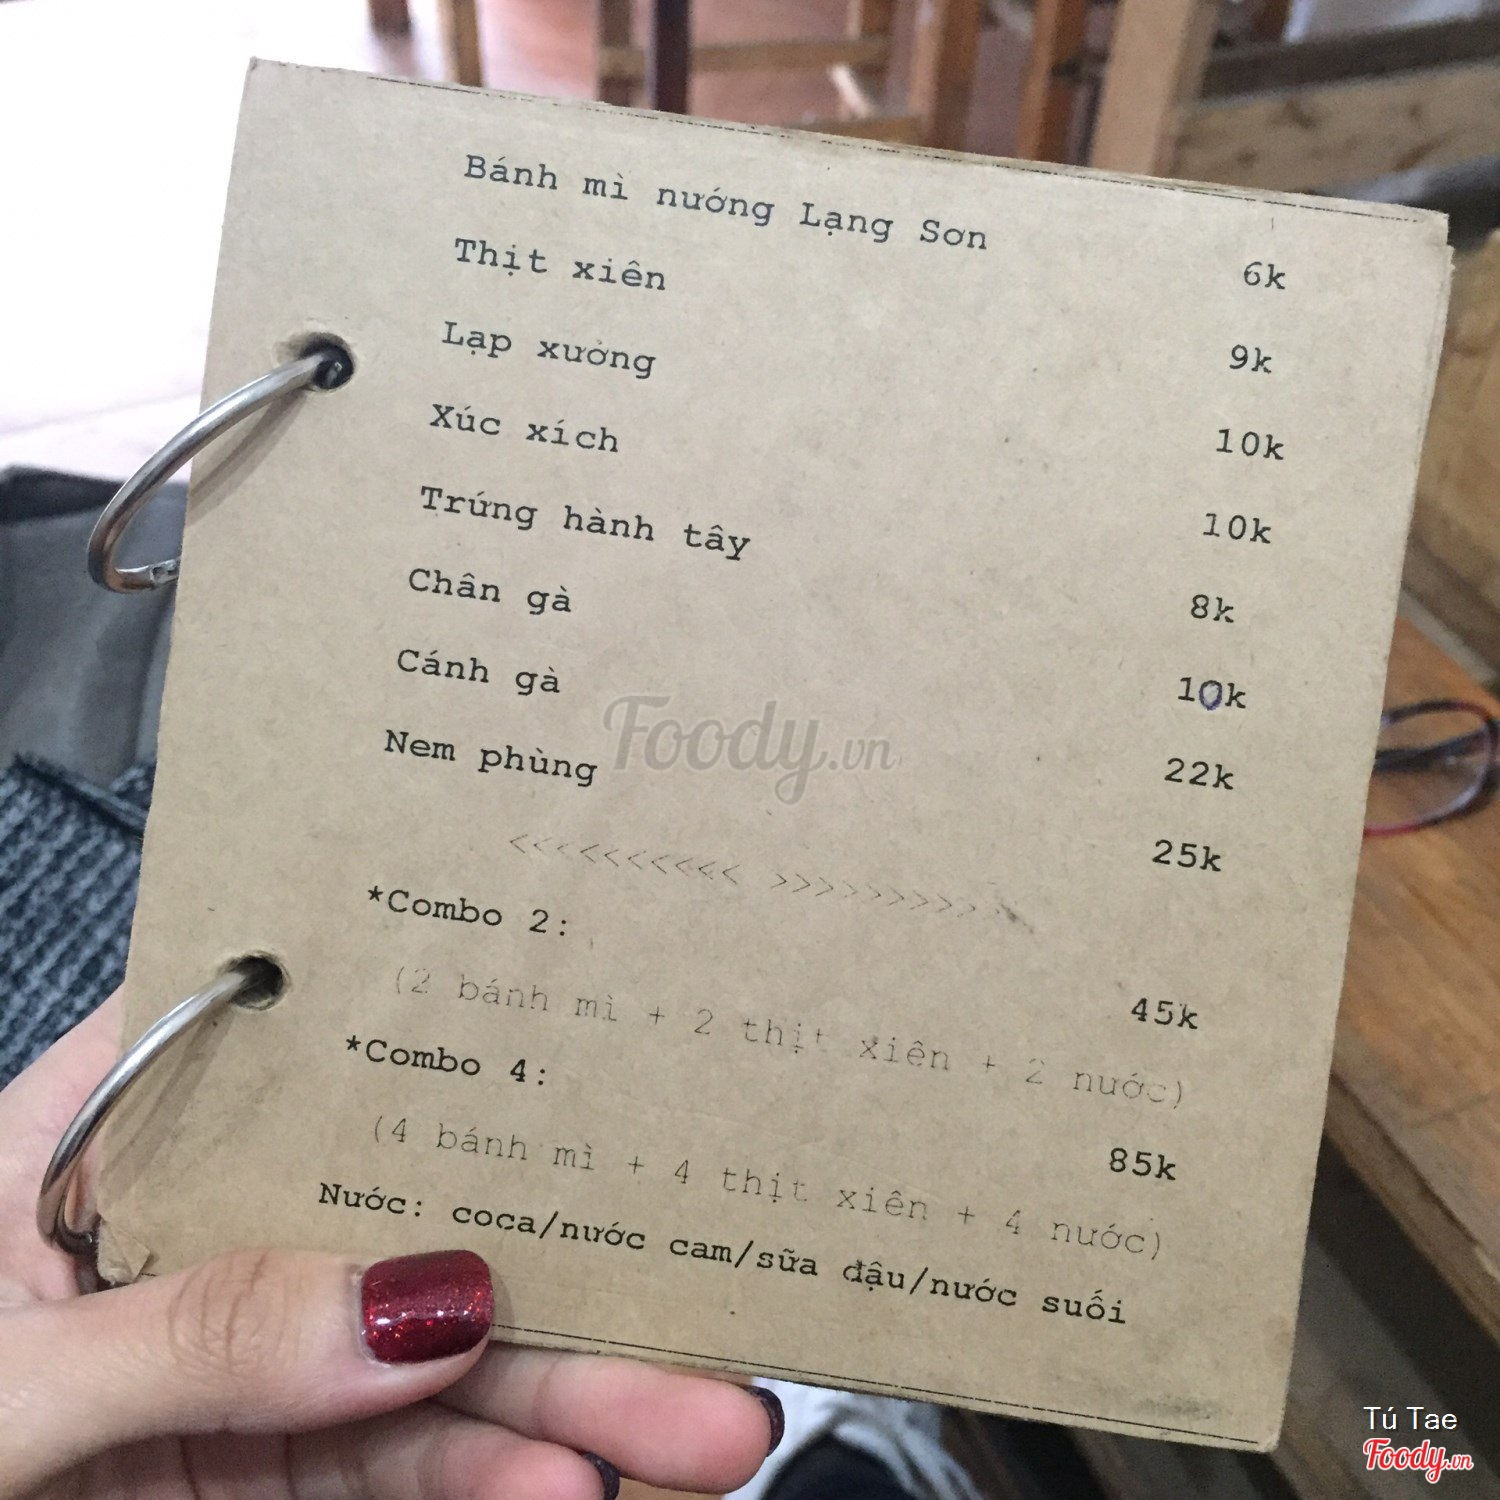 Bánh mì nướng Lạng Sơn 6k
Thịt xiên 9k
Lạp xưởng 10k
Xúc xích 10k
Trứng hành tây 8k
Chân gà 10k
Cánh gà 22k
Nem phùng 25k
<<<<<<<<<< >>>>>>>>>>
*Combo 2: 45k
(2 bánh mì + 2 thịt xiên + 2 nước)
*Combo 4: 85k
(4 bánh mì + 4 thịt xiên + 4 nước)
Nước: coca/nước cam/sữa đậu/nước suối
Foody.vn
Tú Tae
Foody.vn